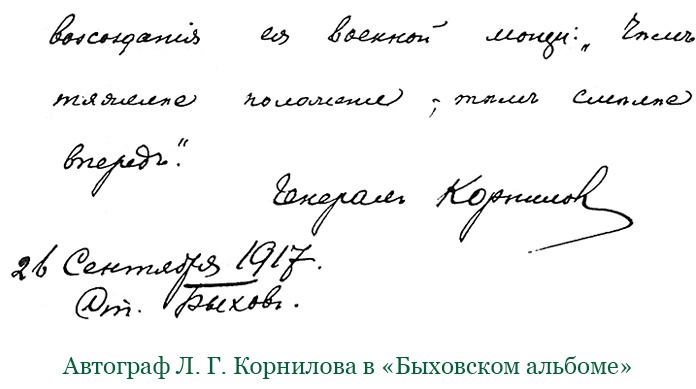 возсозданія ея военной мощи: „Чѣмъ
тяжелѣе положеніе, тѣмъ смѣлѣе
впередъ“.
Генералъ Корниловъ
26 Сентября 1917.
Ст. Быховъ.
Автограф Л. Г. Корнилова в «Быховском альбоме»